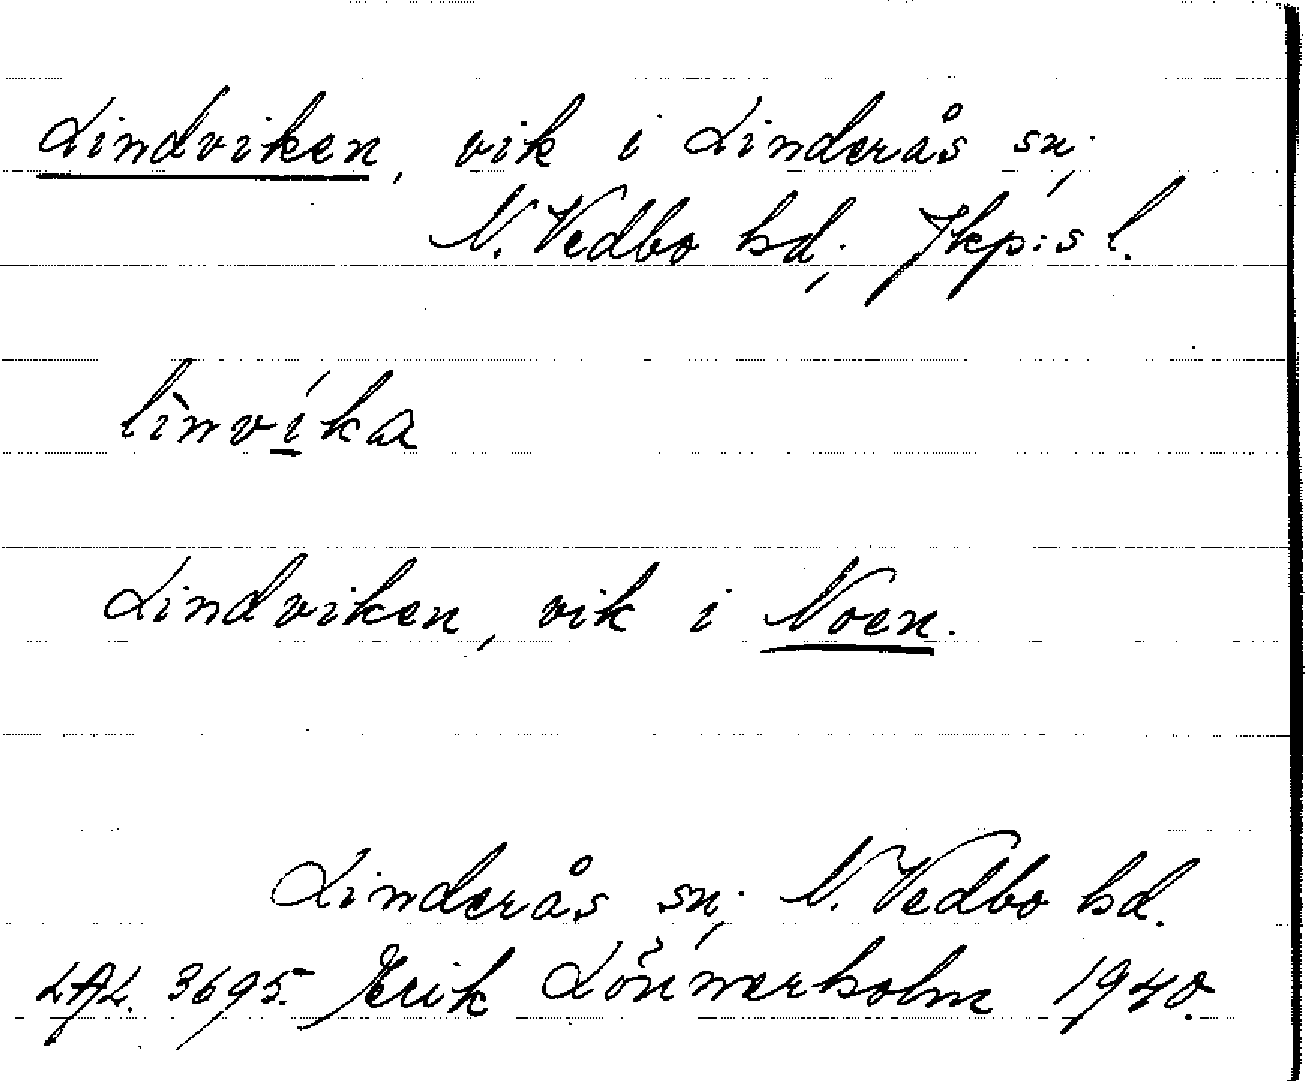 Lindviken, vik i Linderås sn;
N. Vedbo hd; Jkp:s l.
lìnvíka
Lindviken, vik i Noen.
Linderås sn; N. Vedbo hd.
LAL. 3695. Erik Lönnerholm 1940.